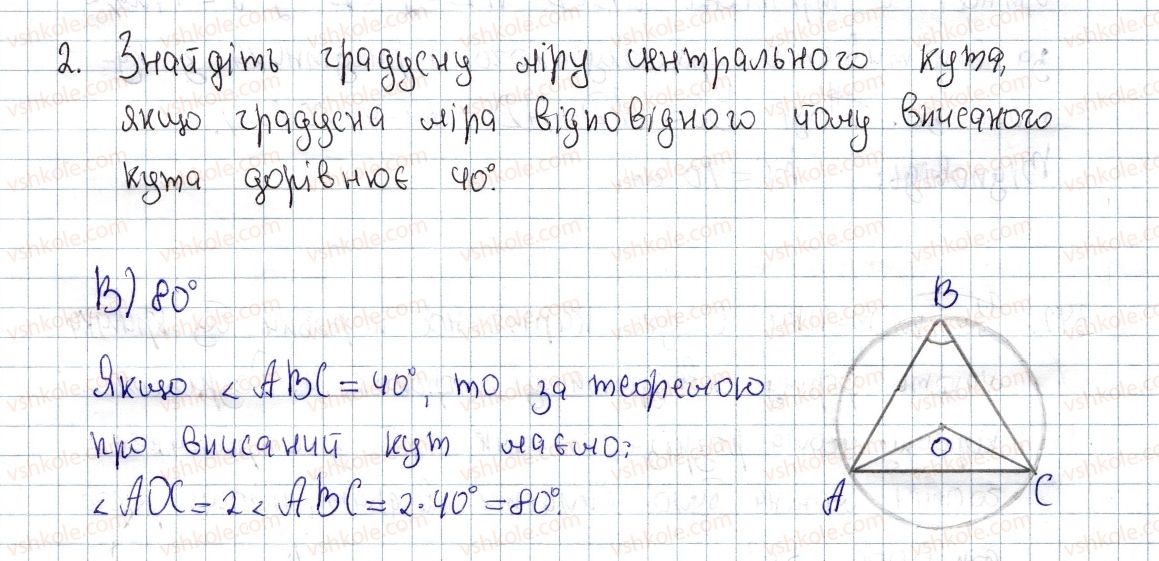 2. Знайдіть градусну міру центрального кута,
якщо градусна міра відповідного йому вписаного
кута дорівнює 40°.
В) 80°
Якщо < ABC = 40°, то за теоремою
про вписаний кут маємо:
< AOC = 2 < ABC = 2·40° = 80°.
B
O
A
C
vshkole.com